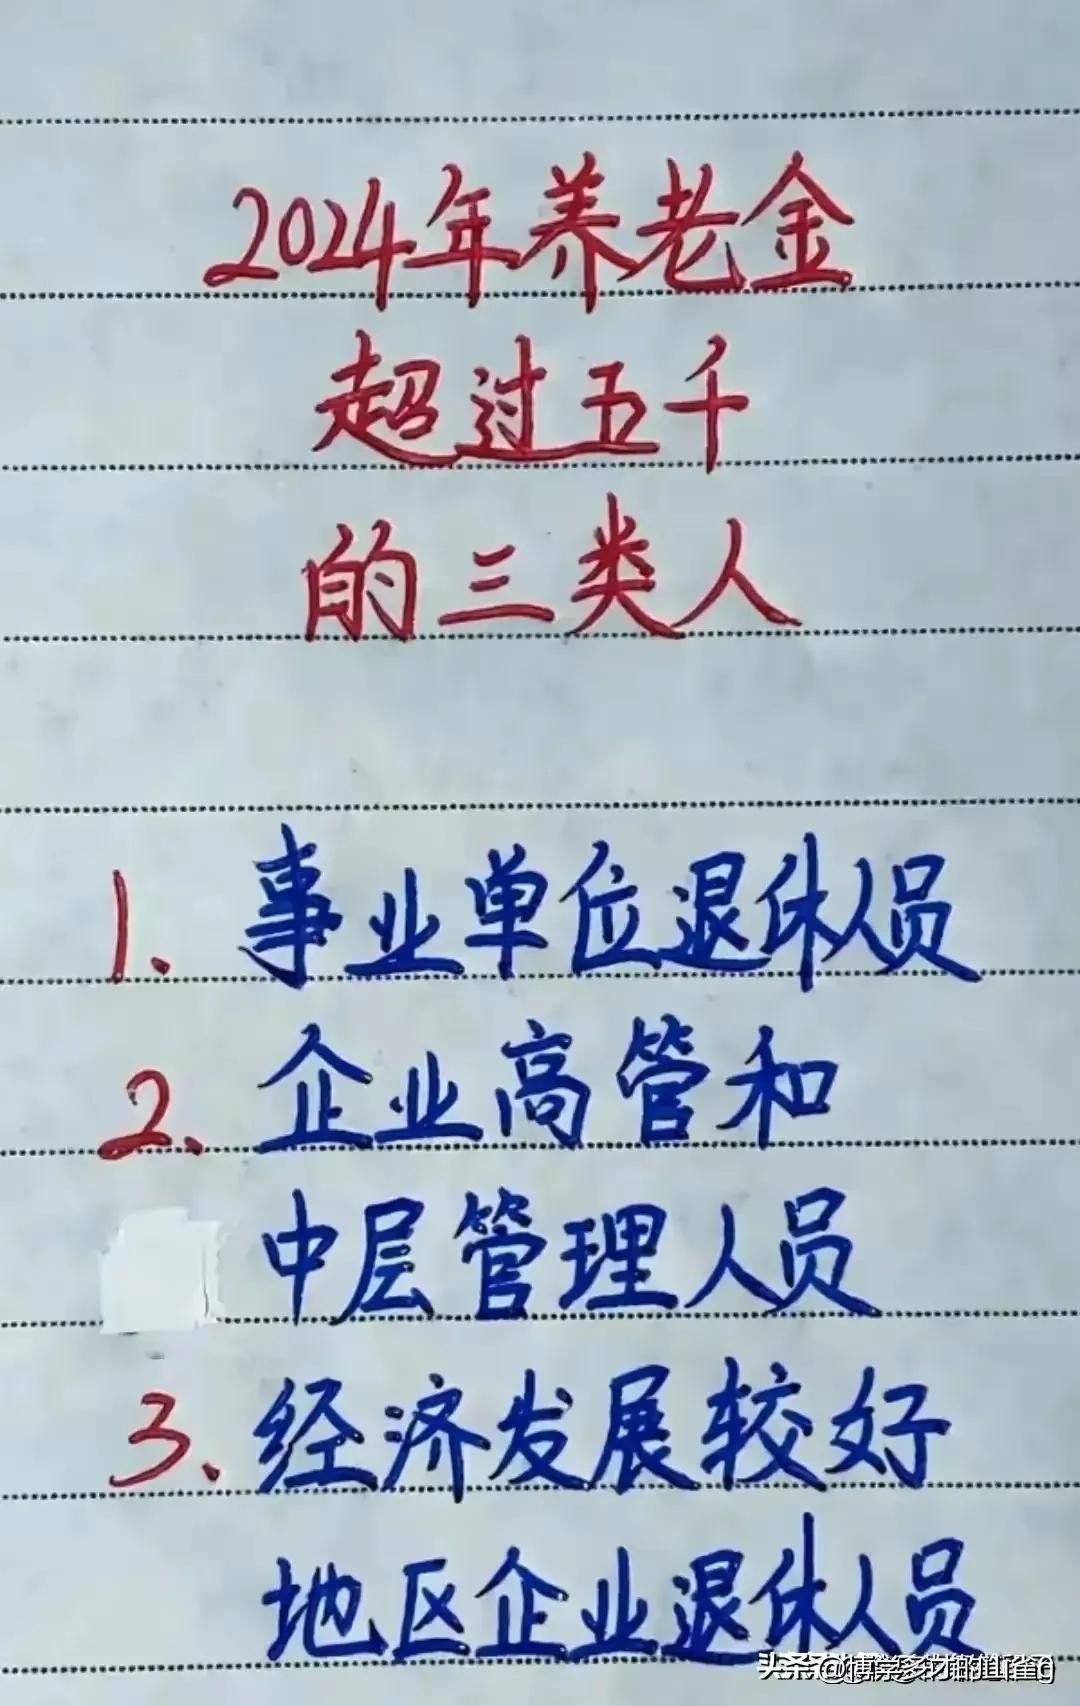 2024年养老金
超过五千
的三类人
1. 事业单位退休人员
2. 企业高管和
中层管理人员
3. 经济发展较好
地区企业退休人员
头条